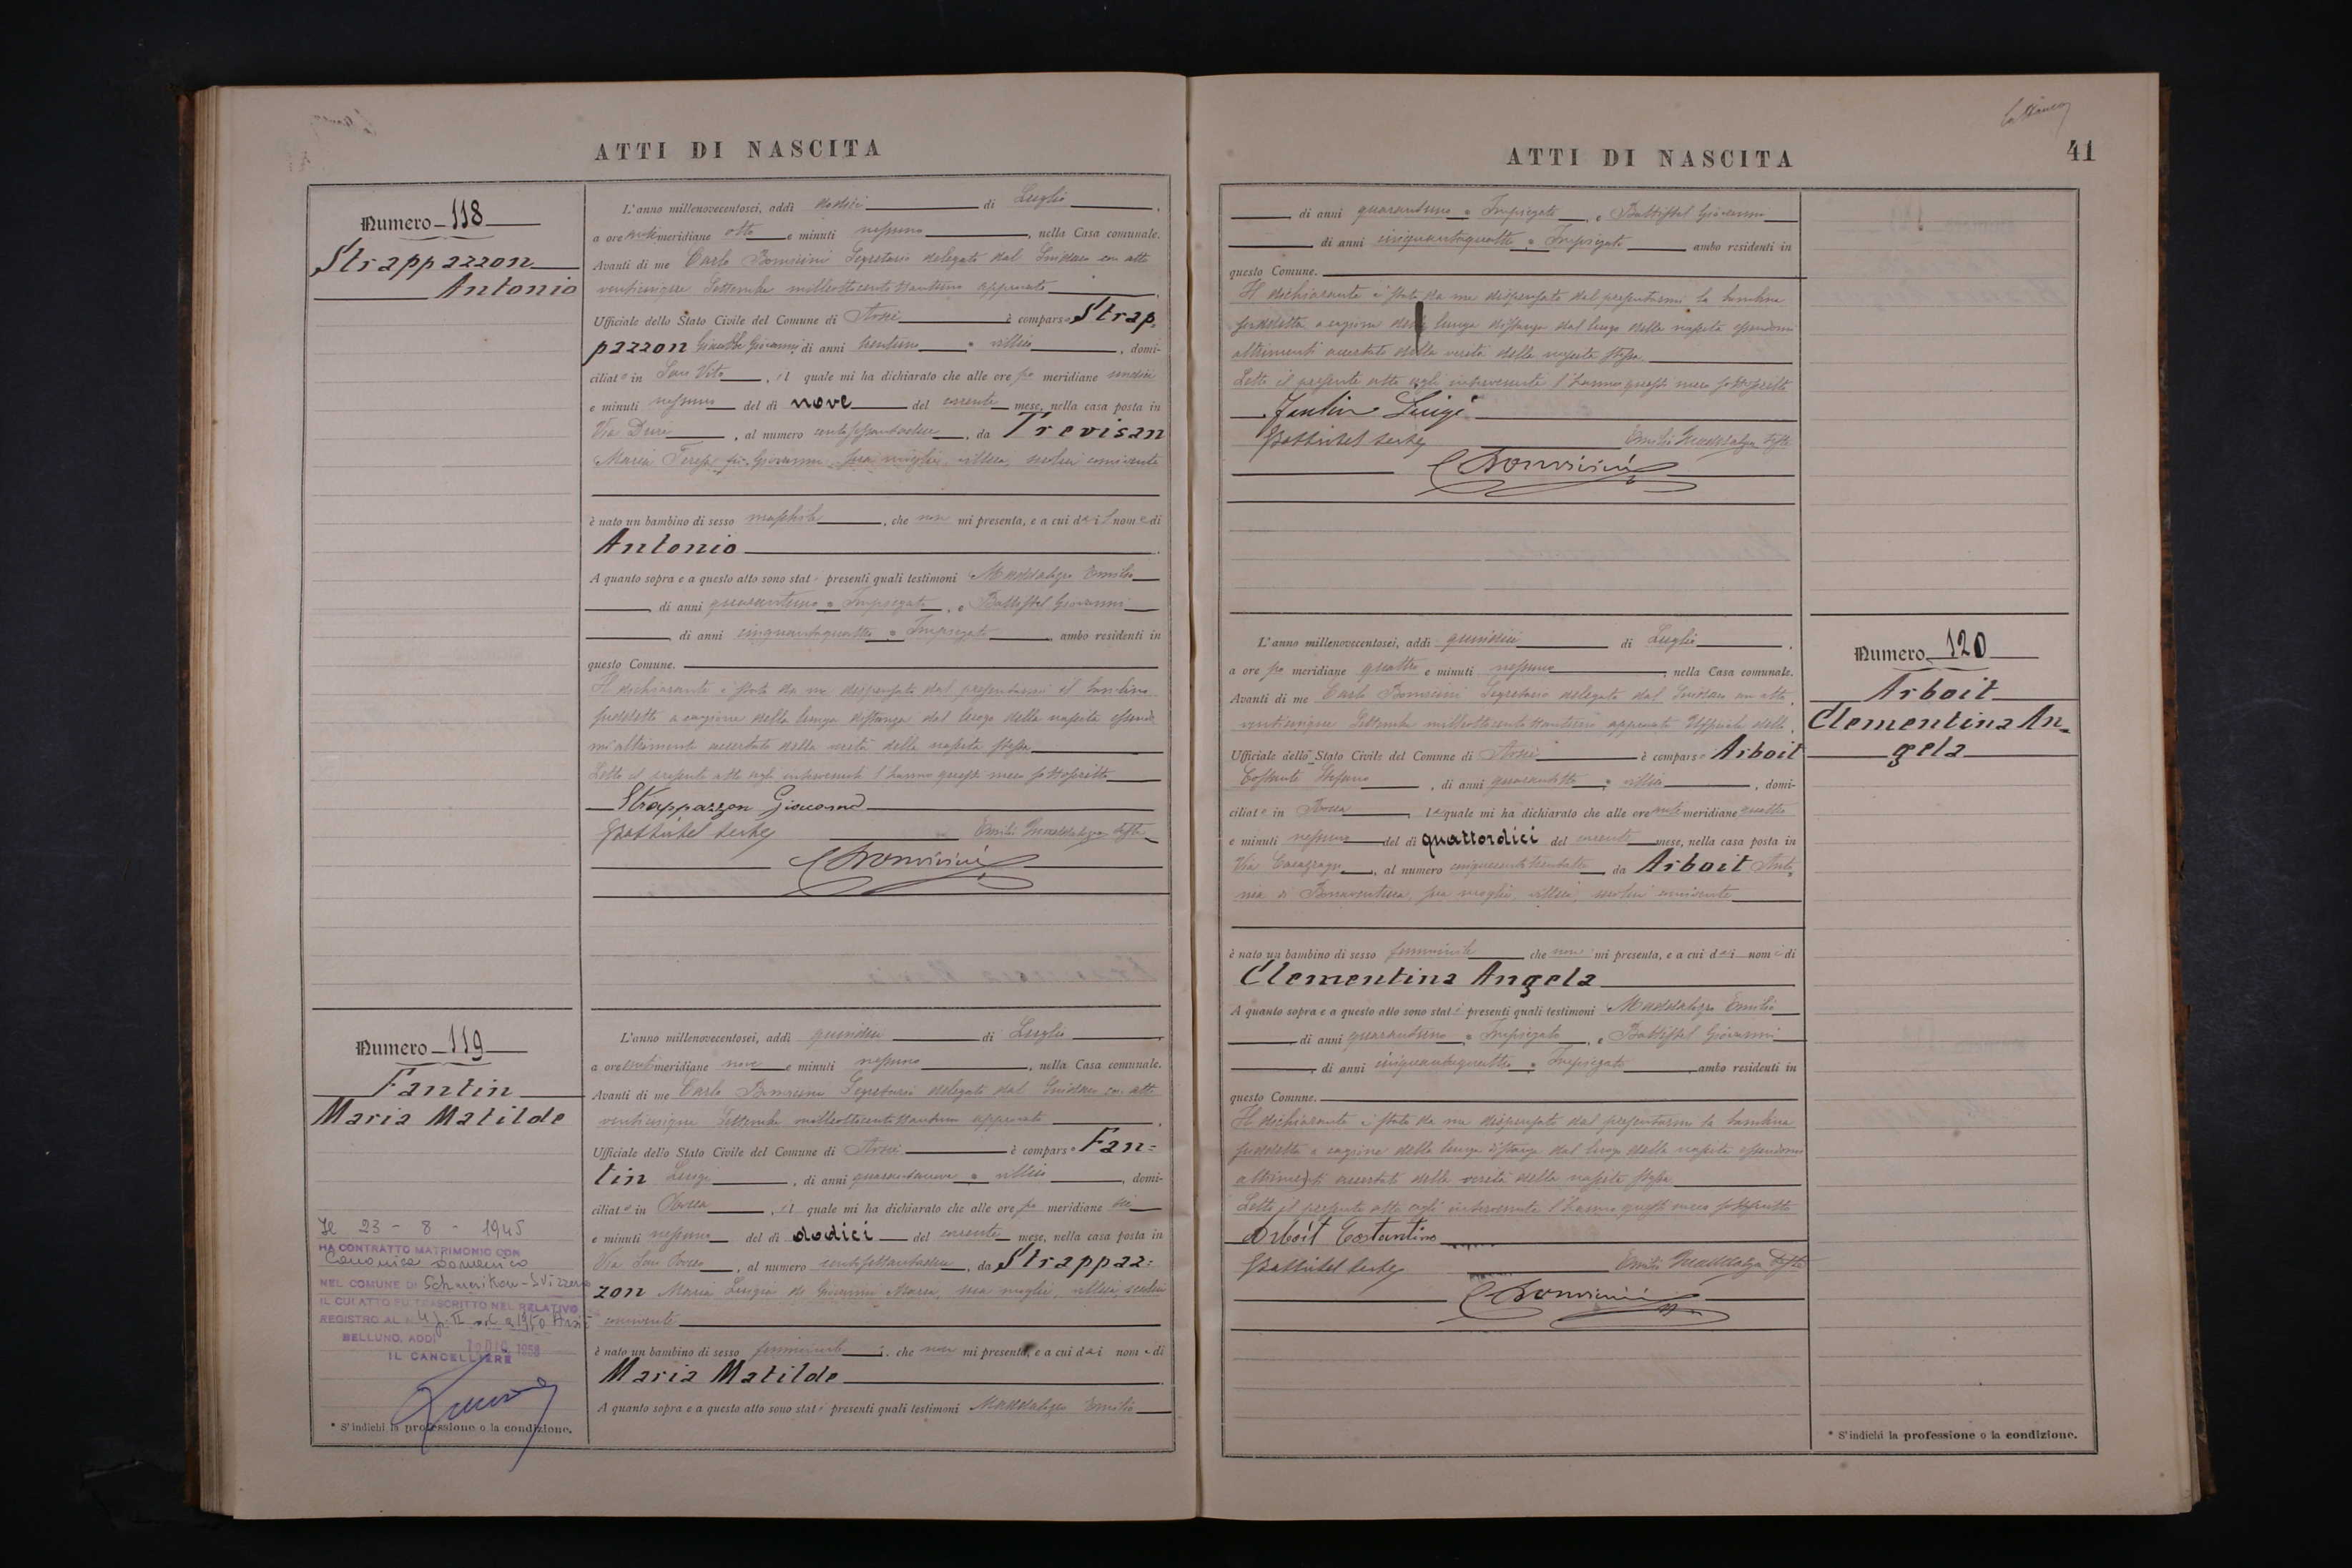 ATTI DI NASCITA
Numero 118
Strappazzon
Antonio
L'anno millenovecentosei, addì dodici di Luglio
a ore anti meridiane otto e minuti nessuno, nella Casa comunale.
Avanti di me Carlo Bonsisini Segretario delegato dal Sindaco con atto
venticinque Settembre milleottocento approvato
Ufficiale dello Stato Civile del Comune di Arsiè è comparso Strap-
pazzon Giovanni, di anni trentuno villico, domi-
ciliato in San Vito, il quale mi ha dichiarato che alle ore po meridiane undici
e minuti nessuno del dì nove del corrente mese, nella casa posta in
Via, al numero, da Trevisan
Maria Teresa fu Giovanni, sua moglie, villica, seco lui convivente
è nato un bambino di sesso maschile, che non mi presenta, e a cui dà il nome di
Antonio
A quanto sopra e a questo atto sono stati presenti quali testimoni Maddalozzo Emilio
di anni quarantuno Impiegato, e Battistel Giovanni
di anni cinquantaquattro Impiegato ambo residenti in
questo Comune.
Il dichiarante è stato da me dispensato dal presentarmi il bambino
suddetto a cagione della lunga distanza dal luogo della nascita essendo
mi altrimenti accertato della verità della nascita stessa
Letto il presente atto agli intervenuti l'hanno questi meco sottoscritto
Strappazzon Giacomo
Battistel teste Emilio Maddalozzo teste
Numero 119
Fantin
Maria Matilde
L'anno millenovecentosei, addì quindici di Luglio
a ore anti meridiane nove e minuti nessuno, nella Casa comunale.
Avanti di me Carlo Segretario delegato dal Sindaco con atto
venticinque Settembre milleottocento approvato
Ufficiale dello Stato Civile del Comune di Arsiè è comparso Fan=
tin Luigi, di anni quarantanove villico, domi-
ciliato in Rocca, il quale mi ha dichiarato che alle ore po meridiane sei
e minuti nessuno del dì dodici del corrente mese, nella casa posta in
Via, al numero, da Strappaz=
zon Maria Luigia di Giovanni Maria, sua moglie, villica, seco lui
convivente
è nato un bambino di sesso femminile, che non mi presenta, e a cui dà i nomi di
Maria Matilde
A quanto sopra e a questo atto sono stati presenti quali testimoni Maddalozzo Emilio
Il 23 - 8 - 1945
HA CONTRATTO MATRIMONIO CON
Canonica Domenico
NEL COMUNE DI Schmerikon - Svizzera
IL CUI ATTO FU TRASCRITTO NEL RELATIVO
REGISTRO AL N. 4 p. II 1950 Arsiè
BELLUNO, ADDÌ DIC 1958
IL CANCELLIERE
* S'indichi la professione o la condizione.
ATTI DI NASCITA
41
di anni quarantuno Impiegato, e Battistel Giovanni
di anni cinquantaquattro Impiegato ambo residenti in
questo Comune.
Il dichiarante è stato da me dispensato dal presentarmi la bambina
suddetta a cagione della lunga distanza dal luogo della nascita essendomi
altrimenti accertato della verità della nascita stessa
Letto il presente atto agli intervenuti l'hanno questi meco sottoscritto
Fantin Luigi
Battistel teste Emilio Maddalozzo teste
Numero 120
Arboit
Clementina An-
gela
L'anno millenovecentosei, addì quindici di Luglio
a ore po meridiane quattro e minuti nessuno, nella Casa comunale.
Avanti di me Carlo Segretario delegato dal Sindaco con atto
venticinque Settembre milleottocento approvato Ufficiale dello
Ufficiale dello Stato Civile del Comune di Arsiè è comparso Arboit
Costante Stefano, di anni quarantotto villico, domi-
ciliato in Rocca, il quale mi ha dichiarato che alle ore anti meridiane quattro
e minuti nessuno del dì quattordici del corrente mese, nella casa posta in
Via, al numero, da Arboit Anto-
nia di Bonaventura, sua moglie, villica, seco lui convivente
è nato un bambino di sesso femminile che non mi presenta, e a cui dà i nomi di
Clementina Angela
A quanto sopra e a questo atto sono stati presenti quali testimoni Maddalozzo Emilio
di anni quarantuno Impiegato, e Battistel Giovanni
di anni cinquantaquattro Impiegato ambo residenti in
questo Comune.
Il dichiarante è stato da me dispensato dal presentarmi la bambina
suddetta a cagione della lunga distanza dal luogo della nascita essendomi
altrimenti accertato della verità della nascita stessa
Letto il presente atto agli intervenuti l'hanno questi meco sottoscritto
Arboit Costantino
Battistel teste Emilio Maddalozzo teste
* S'indichi la professione o la condizione.